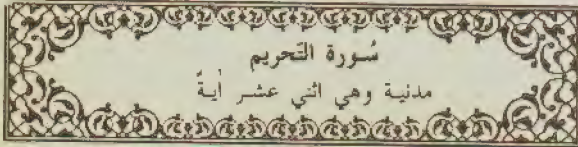 سُورة التَحريم
مدنية وهي اثني عشر أيةً